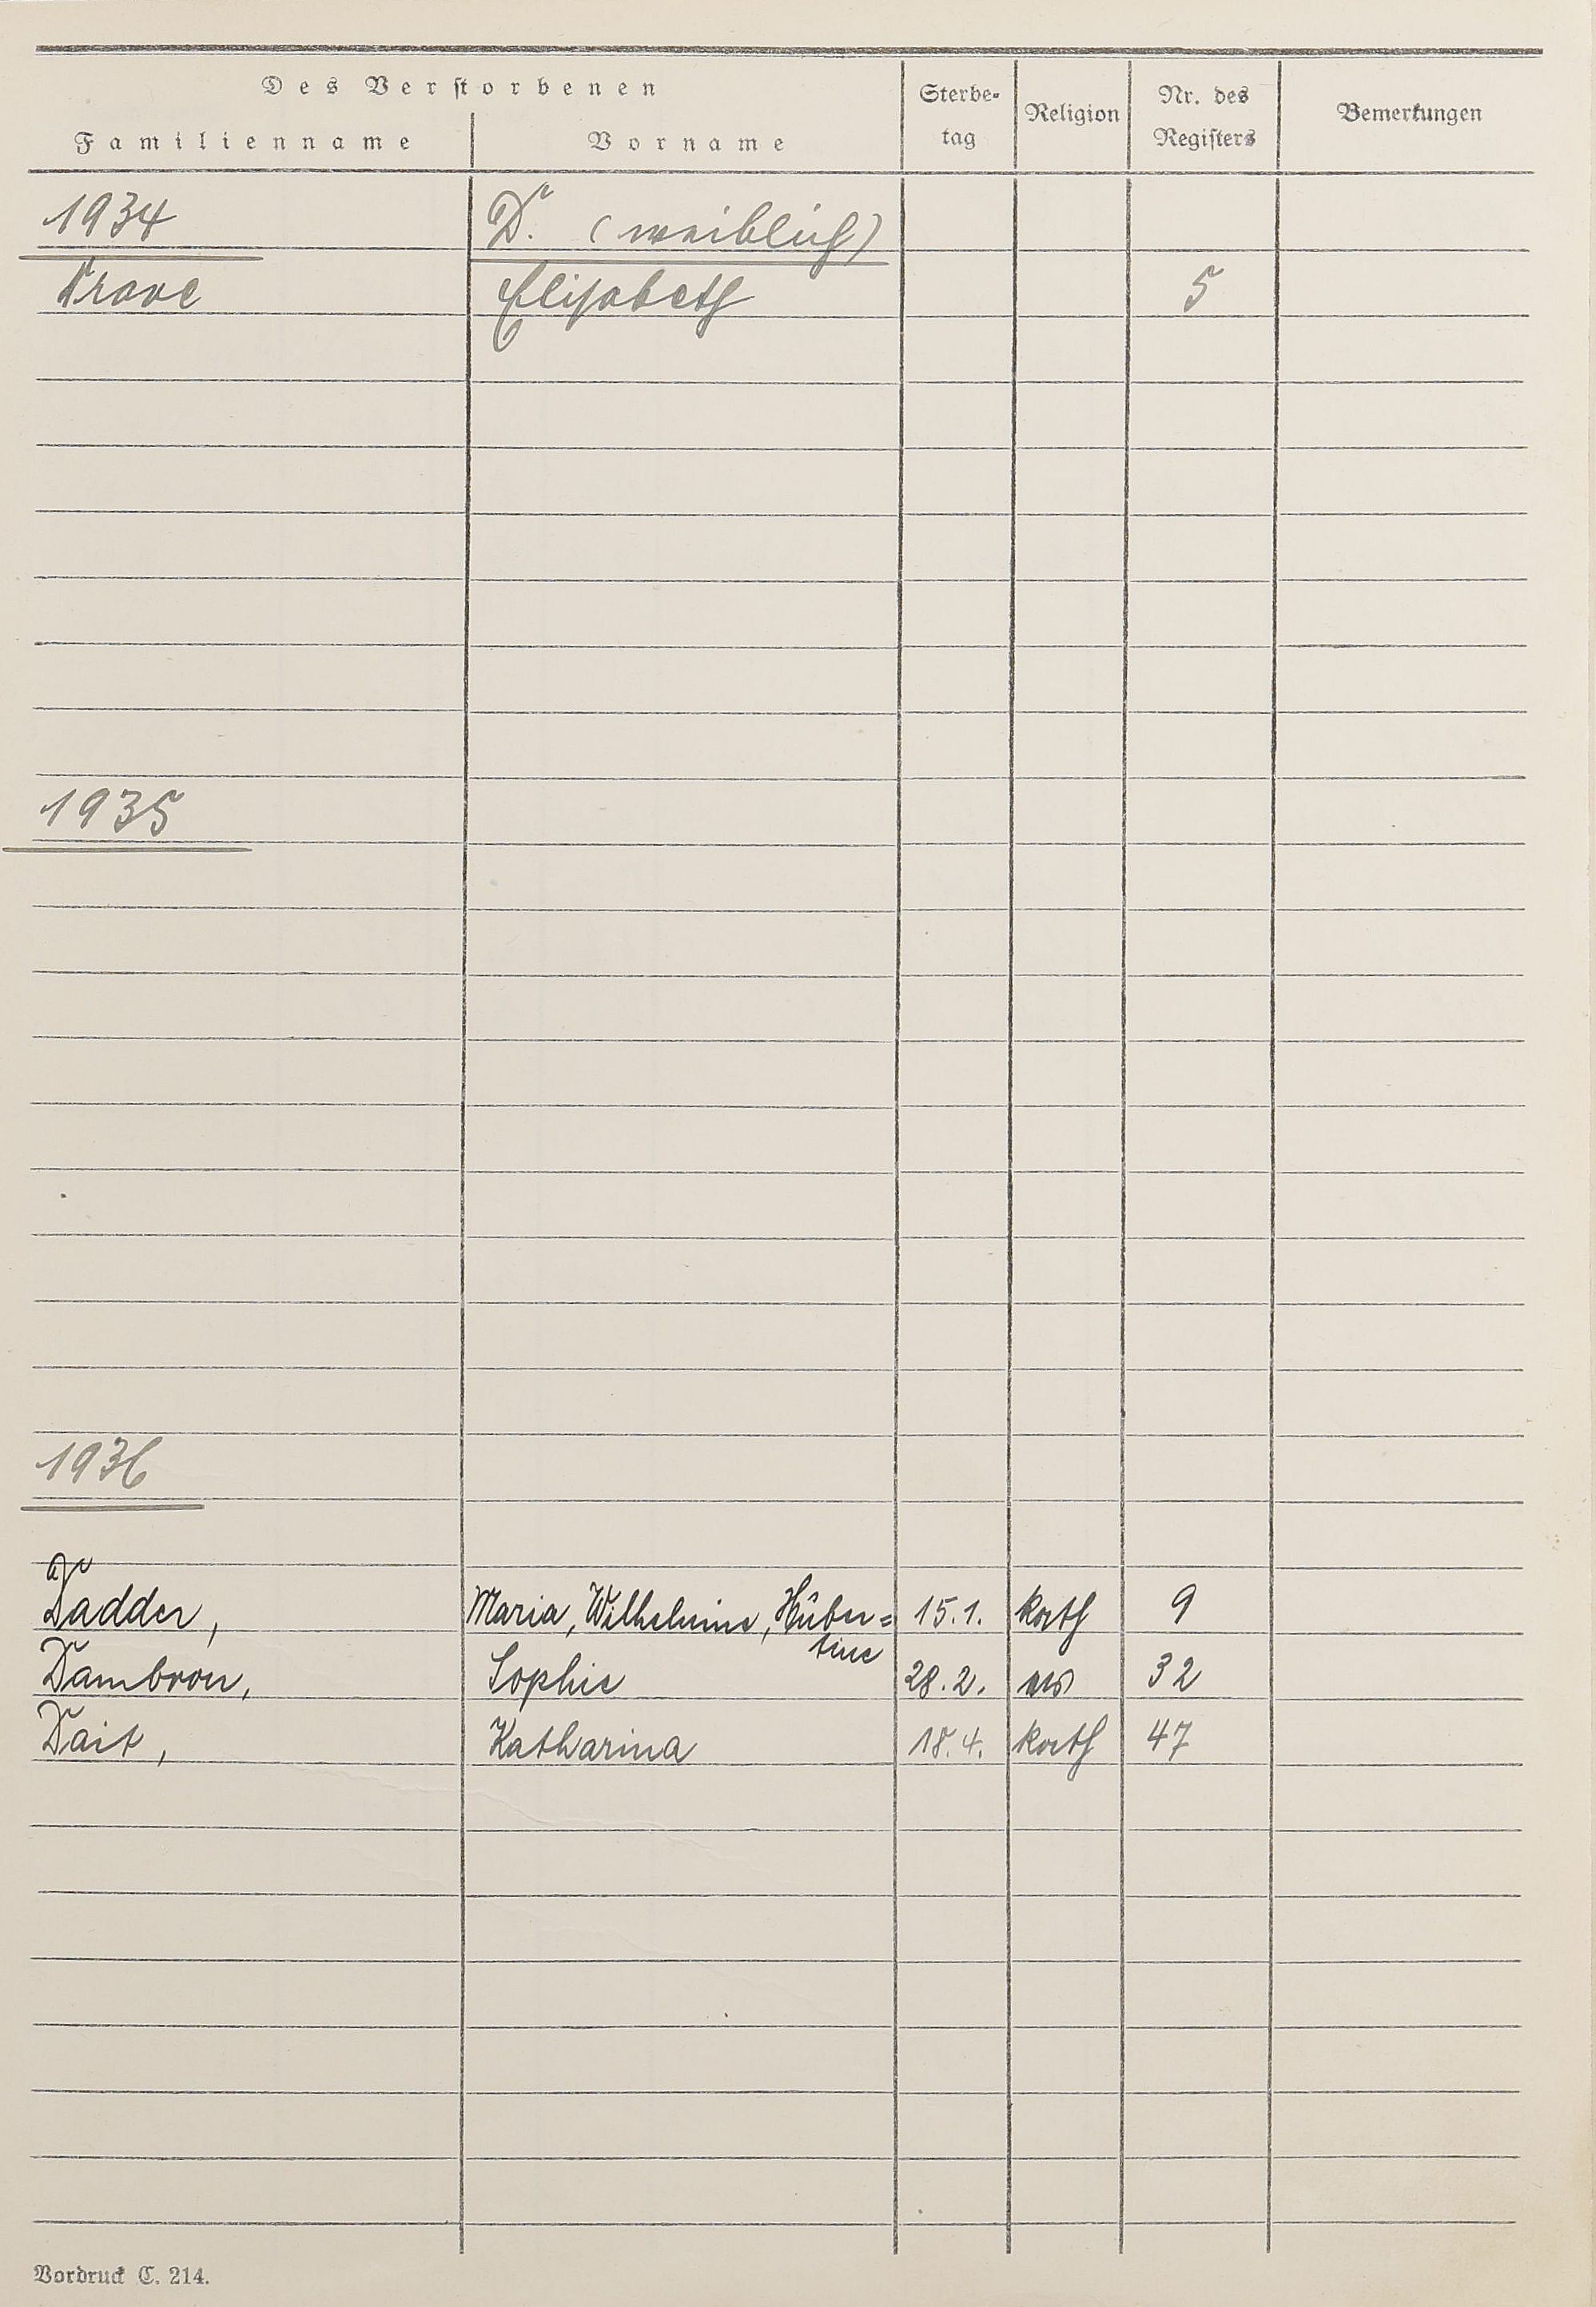 Des Verstorbenen
Familienname Vorname Sterbe-tag Religion Nr. des Registers Bemerkungen
1934 D. (weiblich)
Elisabeth 5
1935
1936
Dadder, Maria, Wilhelmine, Hüber=
tine 15.1. kath 9
Dambron, Sophie 28.2. 32
Dait, Katharina 18.4. kath 47
Vordruck C. 214.